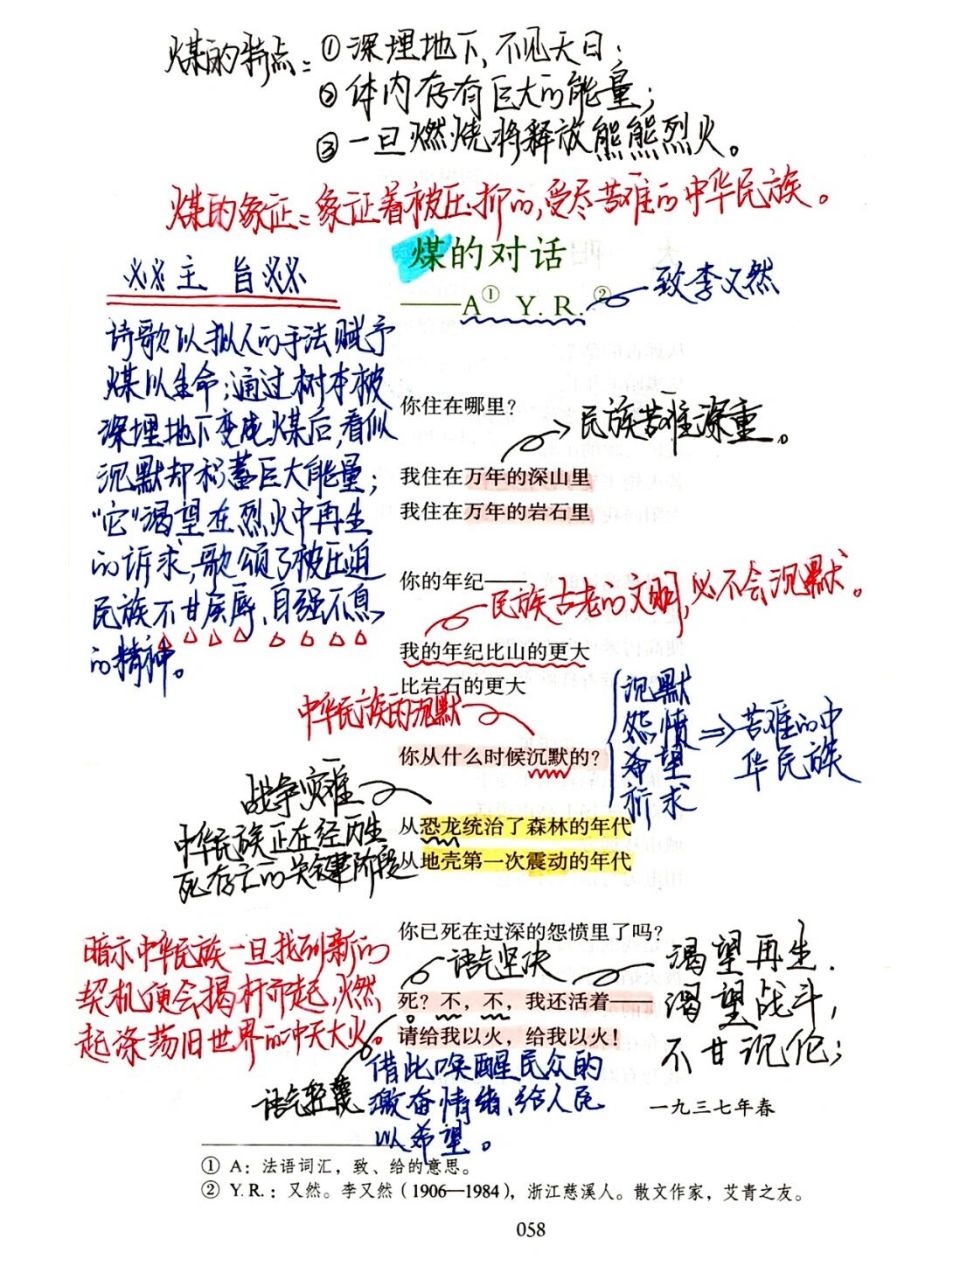 煤的特点：①深埋地下，不见天日；
②体内存有巨大的能量；
③一旦燃烧将释放熊熊烈火。
煤的象征：象征着被压抑的，受尽苦难的中华民族。
煤的对话
——A① Y. R.②
致李又然
主旨
诗歌以拟人的手法赋予
煤以生命；通过树木被
深埋地下变成煤后，看似
沉默却积蓄巨大能量；
“它”渴望在烈火中再生
的诉求，歌颂了被压迫
民族不甘屈辱、自强不息
的精神。
你住在哪里？
民族苦难深重。
我住在万年的深山里
我住在万年的岩石里
你的年纪——
民族古老的文明，必不会沉默。
我的年纪比山的更大
比岩石的更大
中华民族的沉默
你从什么时候沉默的？
沉默
怨愤
希望
祈求
⇒苦难的中
华民族
战争灾难
中华民族正在经历生
死存亡的关键阶段
从恐龙统治了森林的年代
从地壳第一次震动的年代
你已死在过深的怨愤里了吗？
语气坚决
渴望再生．
渴望战斗，
不甘沉沦；
死？不，不，我还活着——
请给我以火，给我以火！
暗示中华民族一旦找到新的
契机便会揭杆而起，燃
起涤荡旧世界的冲天大火。
语气轻蔑
借此唤醒民众的
激奋情绪、给人民
以希望。
一九三七年春
① A：法语词汇，致、给的意思。
② Y. R.：又然。李又然（1906—1984），浙江慈溪人。散文作家，艾青之友。
058